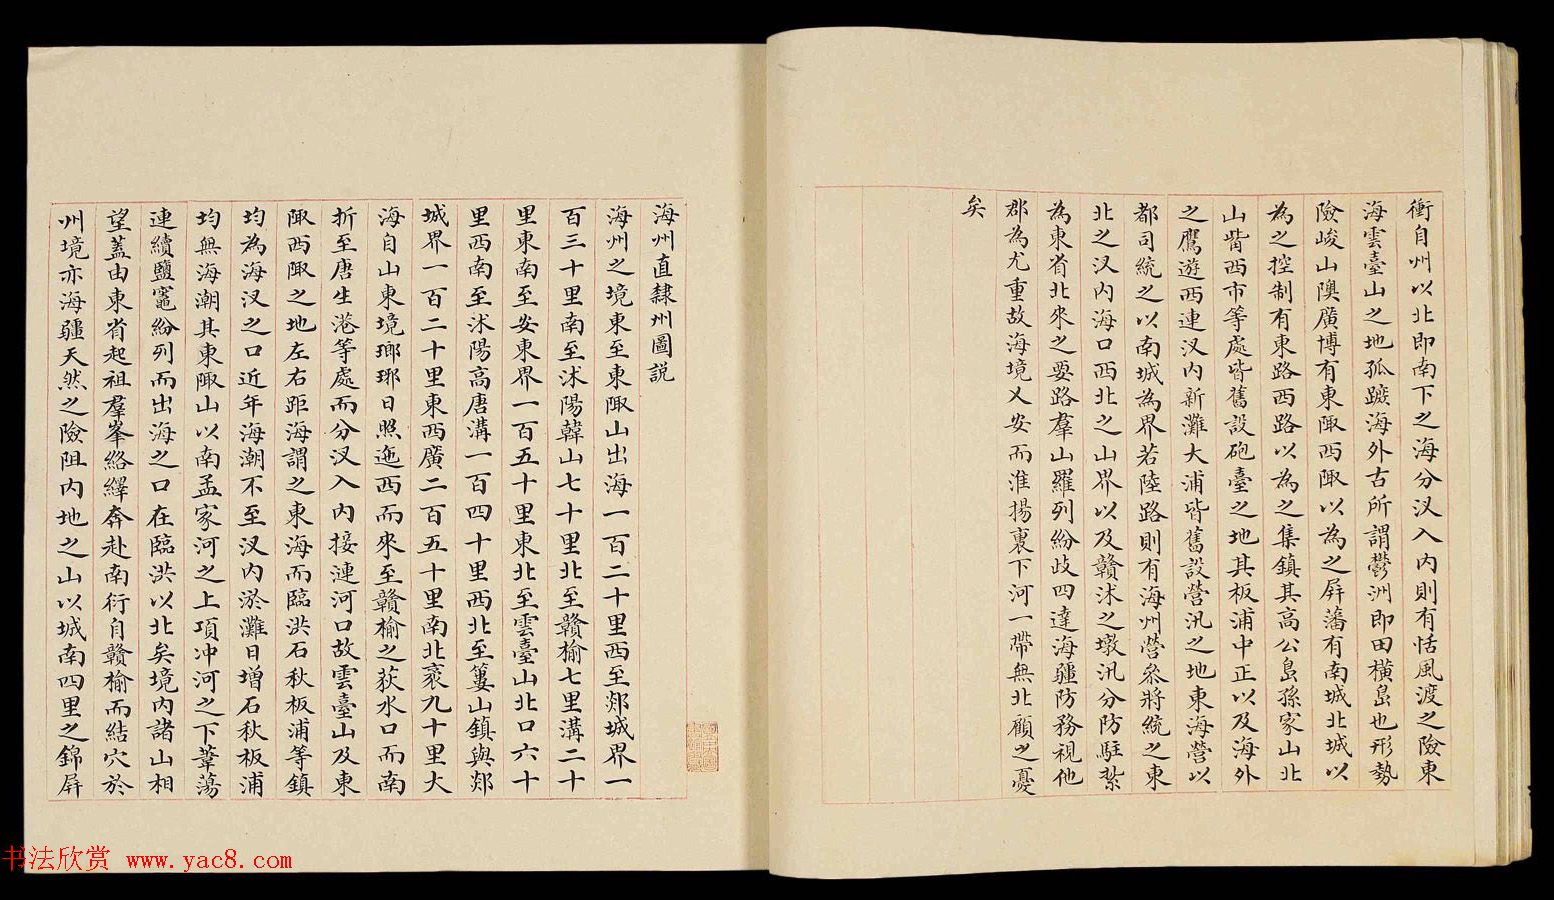 衝自州以北即南下之海分汊入内則有恬風渡之險東
海雲臺山之地孤蹤海外古所謂鬱洲即田橫島也形勢
險峻山隩廣博有東陬西陬以為之屏藩有南城北城以
為之控制有東路西路以為之集鎮其高公島孫家山北
山嘴西市等處皆舊設砲臺之地其板浦中正以及海外
之鷹遊西連汊内新灘大浦皆舊設營汛之地東海營以
都司統之以南城為界若陸路則有海州營叅將統之東
北之汊内海口西北之山界以及贛沭之墩汛分防駐紮
為東省北來之要路羣山羅列紛歧四達海疆防務視他
郡為尤重故海境乂安而淮揚裏下河一帶無北顧之憂
矣
海州直隸州圖説
海州之境東至東陬山出海一百二十里西至郯城界一
百三十里南至沭陽韓山七十里北至贛榆七里溝二十
里東南至安東界一百五十里東北至雲臺山北口六十
里西南至沭陽高唐溝一百四十里西北至蔞山鎮與郯
城界一百二十里東西廣二百五十里南北袤九十里大
海自山東境瑯琊日照迤西而來至贛榆之荻水口而南
折至唐生港等處而分汊入内接漣河口故雲臺山及東
陬西陬之地左右距海謂之東海而臨洪石秋板浦等鎮
均為海汊之口近年海潮不至汊内淤灘日增石秋板浦
均無海潮其東陬山以南孟家河之上項冲河之下葦蕩
連續鹽竈紛列而出海之口在臨洪以北矣境内諸山相
望蓋由東省起祖羣峯絡繹奔赴南衍自贛榆而結穴於
州境亦海疆天然之險阻内地之山以城南四里之錦屏
书法欣赏 www.yac8.com